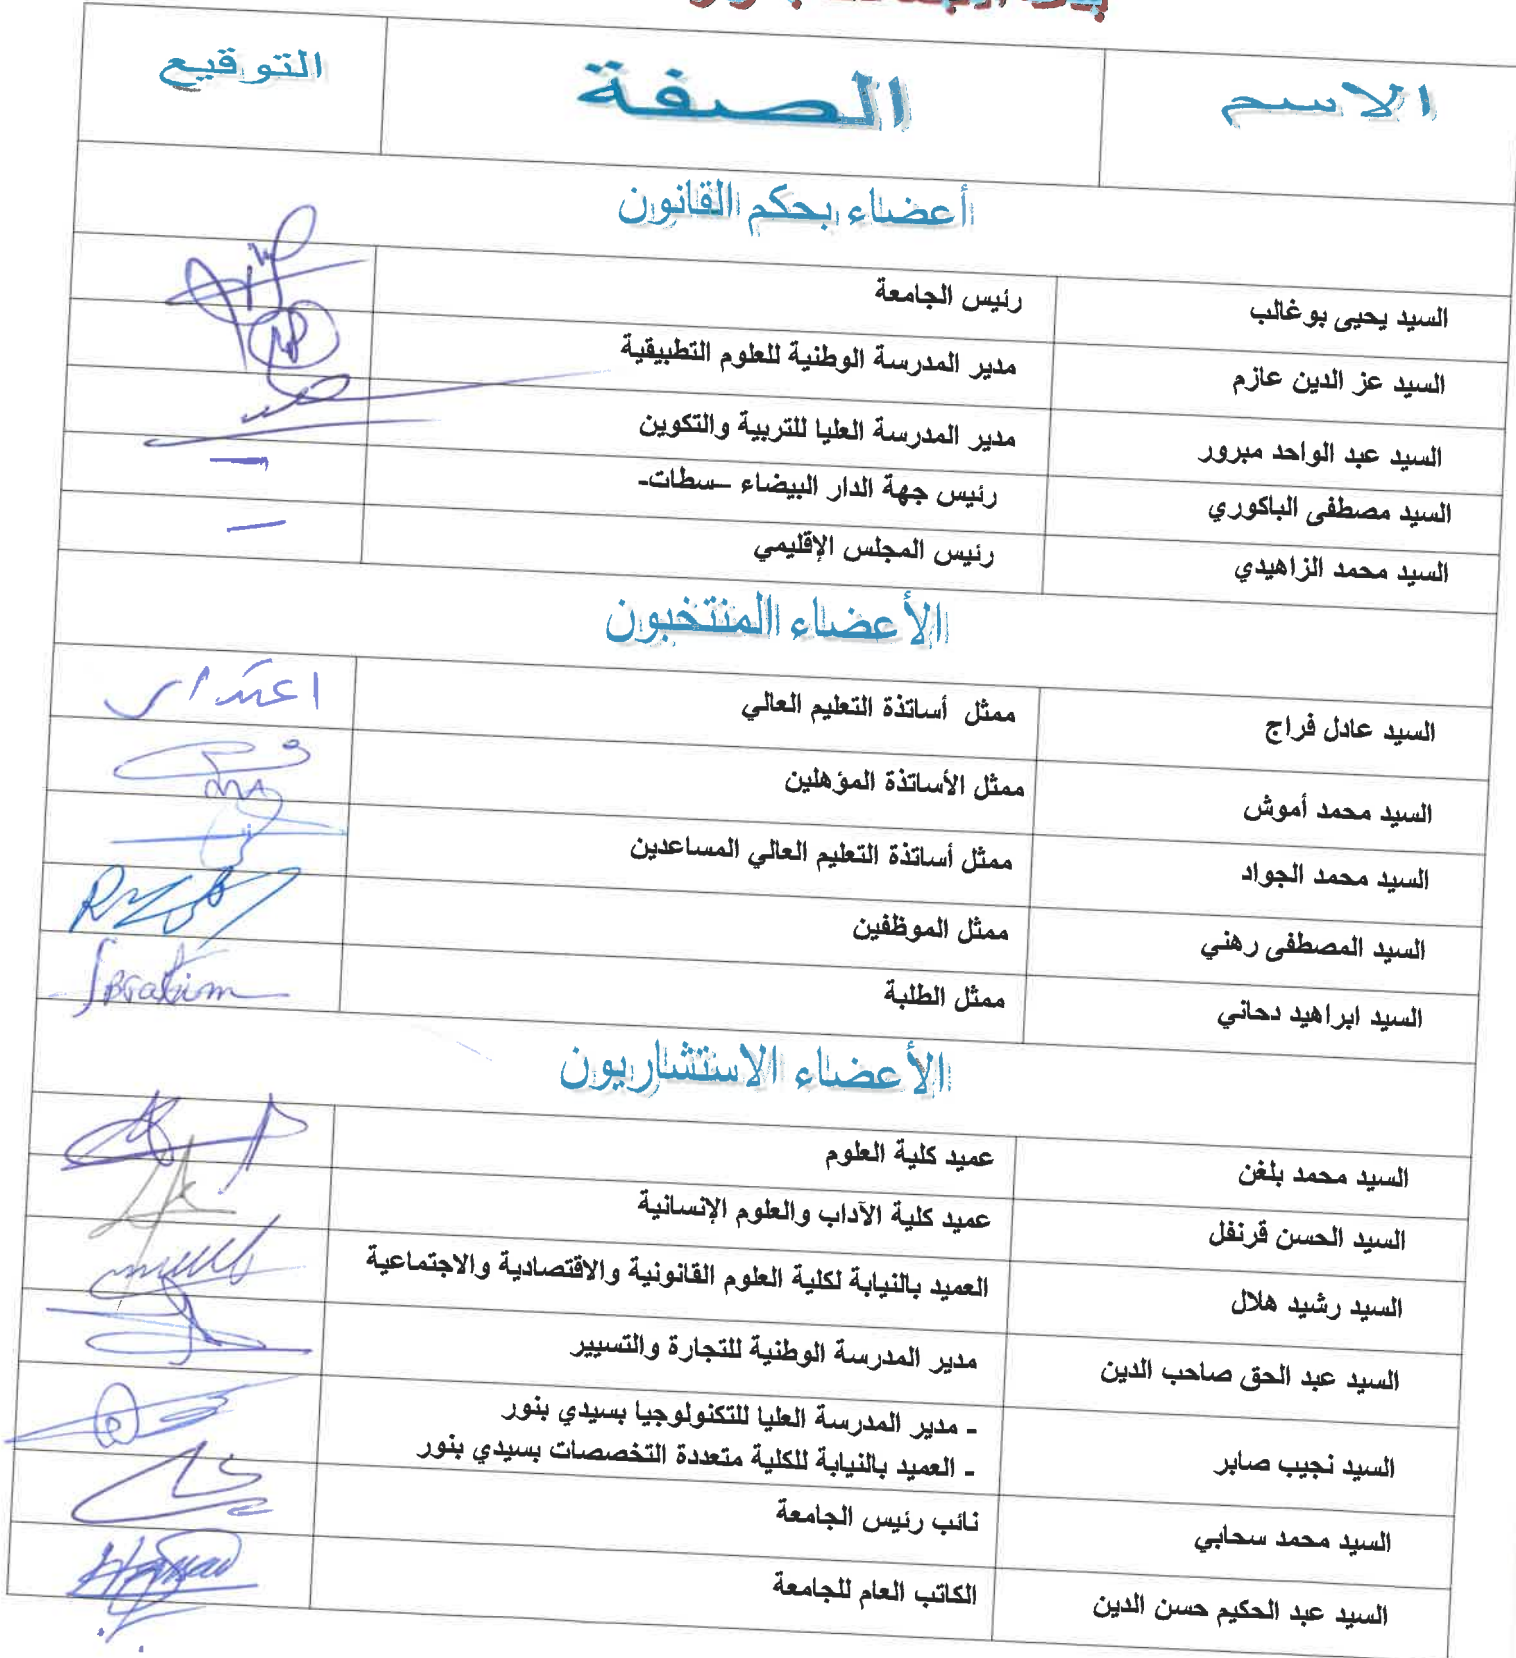 الاسم الصفة التوقيع
أعضاء بحكم القانون
السيد يحيى بوغالب رئيس الجامعة
السيد عز الدين عازم مدير المدرسة الوطنية للعلوم التطبيقية
السيد عبد الواحد مبرور مدير المدرسة العليا للتربية والتكوين
السيد مصطفى الباكوري رئيس جهة الدار البيضاء –سطات-
السيد محمد الزاهيدي رئيس المجلس الإقليمي
الأعضاء المنتخبون
السيد عادل فراج ممثل أساتذة التعليم العالي اعتذار
السيد محمد أموش ممثل الأساتذة المؤهلين
السيد محمد الجواد ممثل أساتذة التعليم العالي المساعدين
السيد المصطفى رهني ممثل الموظفين
السيد ابراهيد دحاني ممثل الطلبة Ibrahim
الأعضاء الاستشاريون
السيد محمد بلغن عميد كلية العلوم
السيد الحسن قرنفل عميد كلية الآداب والعلوم الإنسانية
السيد رشيد هلال العميد بالنيابة لكلية العلوم القانونية والاقتصادية والاجتماعية
السيد عبد الحق صاحب الدين مدير المدرسة الوطنية للتجارة والتسيير
السيد نجيب صابر - مدير المدرسة العليا للتكنولوجيا بسيدي بنور
- العميد بالنيابة للكلية متعددة التخصصات بسيدي بنور
السيد محمد سحابي نائب رئيس الجامعة
السيد عبد الحكيم حسن الدين الكاتب العام للجامعة